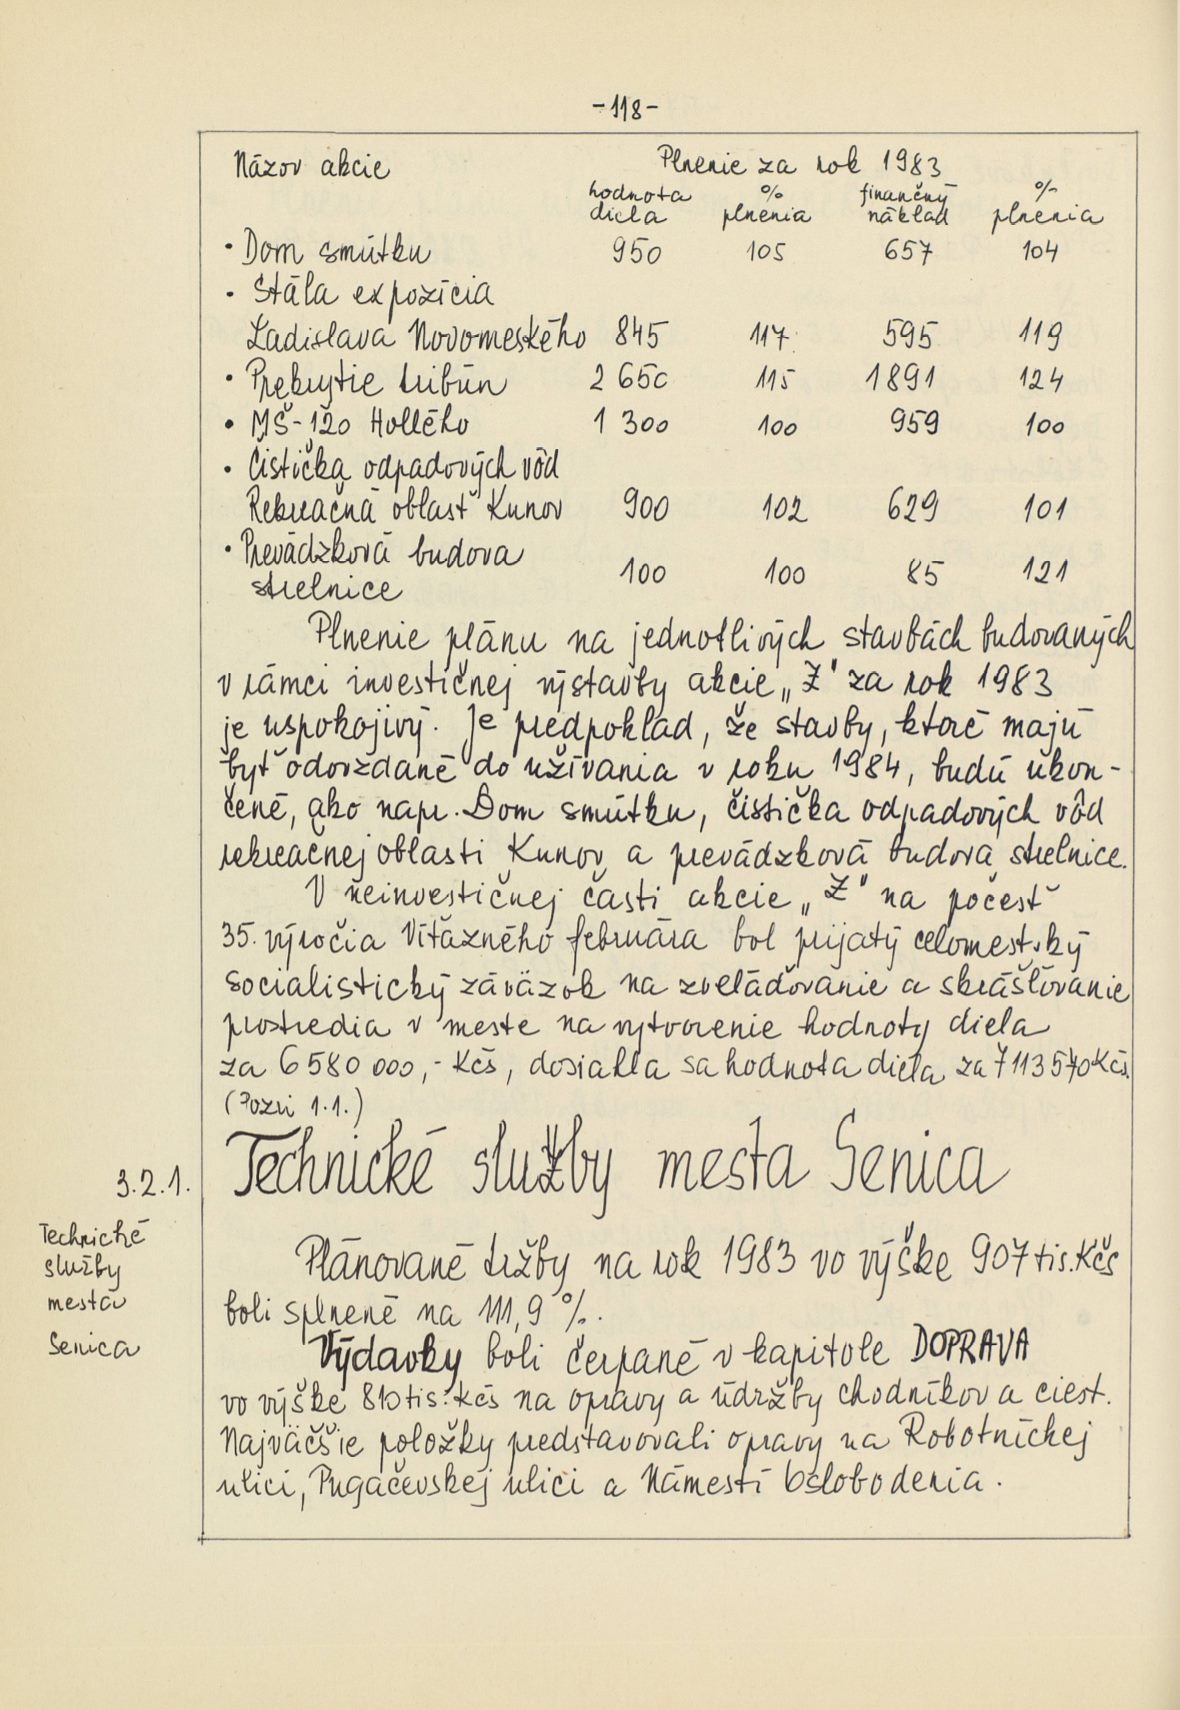 -118-
Názov akcie Plnenie za rok 1983
hodnota diela % plnenia finančný náklad % plnenia
• Dom smútku 950 105 657 104
• Stála expozícia
Ladislava Novomeského 845 117 595 119
• Prekrytie tribún 2 650 115 1891 124
• MŠ-120 Hollého 1 300 100 959 100
• Čistička odpadových vôd
Rekreačná oblasť Kunov 900 102 629 101
• Prevádzková budova
strelnice 100 100 85 121
Plnenie plánu na jednotlivých stavbách budovaných
v rámci investičnej výstavby akcie „Z" za rok 1983
je uspokojivý. Je predpoklad, že stavby, ktoré majú
byť odovzdané do užívania v roku 1984, budú ukon-
čené, ako napr. Dom smútku, čistička odpadových vôd
rekreačnej oblasti Kunov a prevádzková budova strelnice.
V neinvestičnej časti akcie „Z" na počesť
35. výročia Víťazného februára bol prijatý celomestský
socialistický záväzok na zveláďovanie a skrášľovanie
prostredia v meste na vytvorenie hodnoty diela
za 6 580 000,- Kčs, dosiahla sa hodnota diela za 7 113 570 Kčs.
(Pozri 1.1.)
3.2.1. Technické služby mesta Senica
Technické
služby
mesta
Senica
Plánované tržby na rok 1983 vo výške 907 tis. Kčs
boli splnené na 111,9 %.
Výdavky boli čerpané v kapitole DOPRAVA
vo výške 810 tis. Kčs na opravy a údržby chodníkov a ciest.
Najväčšie položky predstavovali opravy na Robotníckej
ulici, Pugačevskej ulici a Námestí Oslobodenia.